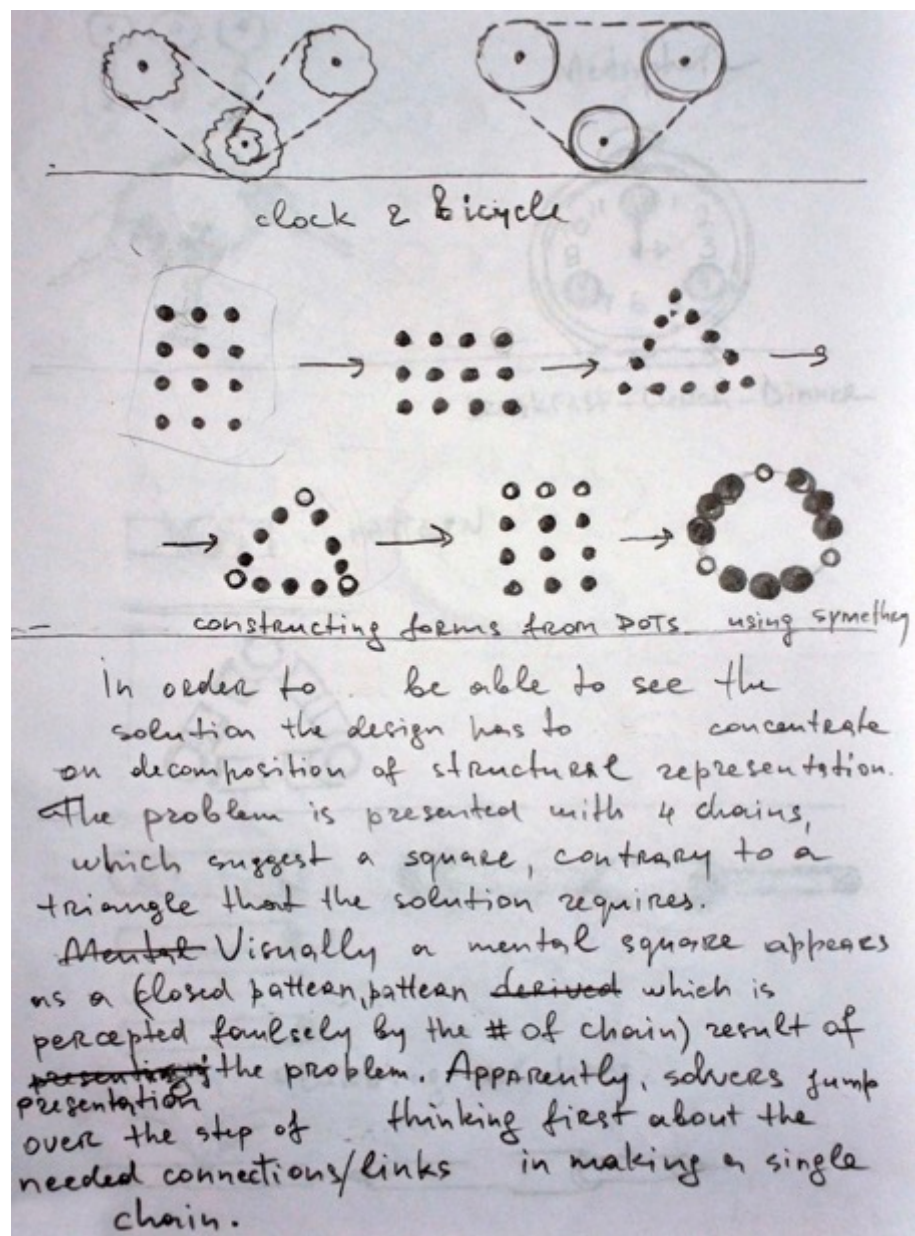 clock & Bicycle
constructing forms from DOTS using symethry
In order to be able to see the
solution the design has to concentrate
on decomposition of structural representation.
The problem is presented with 4 chains,
which suggest a square, contrary to a
triangle that the solution requires.
Mental Visually a mental square appears
as a (closed pattern, pattern derived which is
percepted faulsely by the # of chain) result of
presenting the problem. Apparently, solvers jump
presentation
over the step of thinking first about the
needed connections/links in making a single
chain.